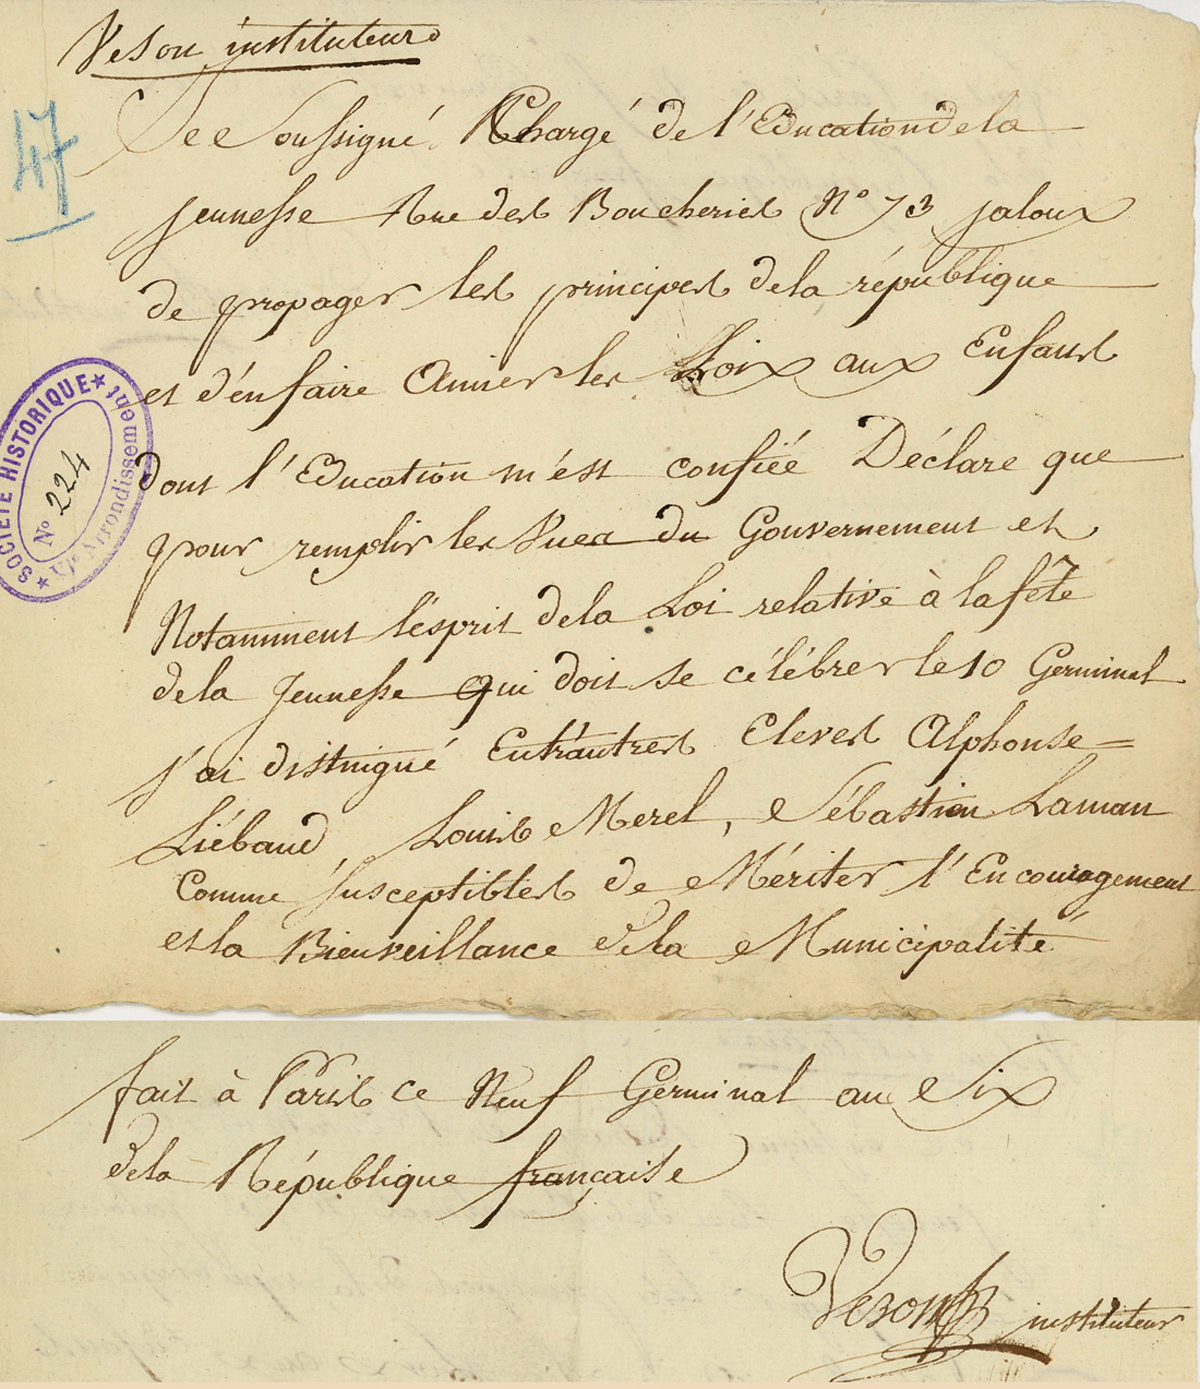 Veson instituteur
47
Je Soussigné Chargé de l'Education de la
jeunesse Rue des Boucheries N° 73 jaloux
de propager les principes de la république
et d'en faire Aimer les Loix aux Enfants
SOCIÉTÉ HISTORIQUE
VIe Arrondissement
N° 224
dont l'Education m'est confiée Déclare que
pour remplir les Vues du Gouvernement et
Notamment l'esprit de la Loi relative à la fête
de la Jeunesse qui doit se célébrer le 10 Germinal
j'ai distingué Entr'autres Eleves Alphonse=
Liébaud, Louis Merel, Sébastien Laman
Comme Susceptibles de Mériter l'Encouragement
et la Bienveillance de la Municipalité
fait à Paris ce Neuf Germinal an Six
de la République française
Veson instituteur